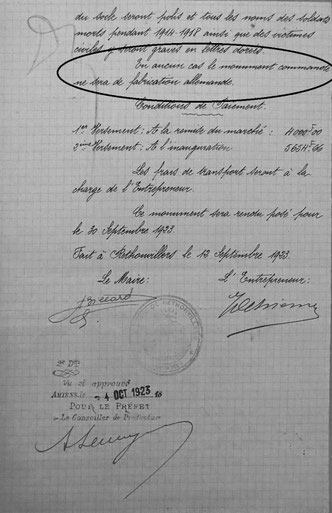 du socle seront polis et tous les noms des soldats
morts pendant 1914-1918 ainsi que des victimes
civiles y seront gravés en lettres dorées.
En aucun cas le monument commandé
ne sera de fabrication allemande.
Conditions de Paiement.
1er Versement: A la remise du marché: 4000F00
2ème Versement: A l'inauguration 5651F66
Les frais de transport seront à la
charge de l'Entrepreneur.
Ce monument sera rendu posé pour
le 30 Septembre 1923.
Fait à Rethonvillers le 12 Septembre 1923.
Le Maire: L'Entrepreneur:
Vu et approuvé
AMIENS, le 4 OCT 1923
POUR LE PRÉFET
Le Conseiller de Préfecture